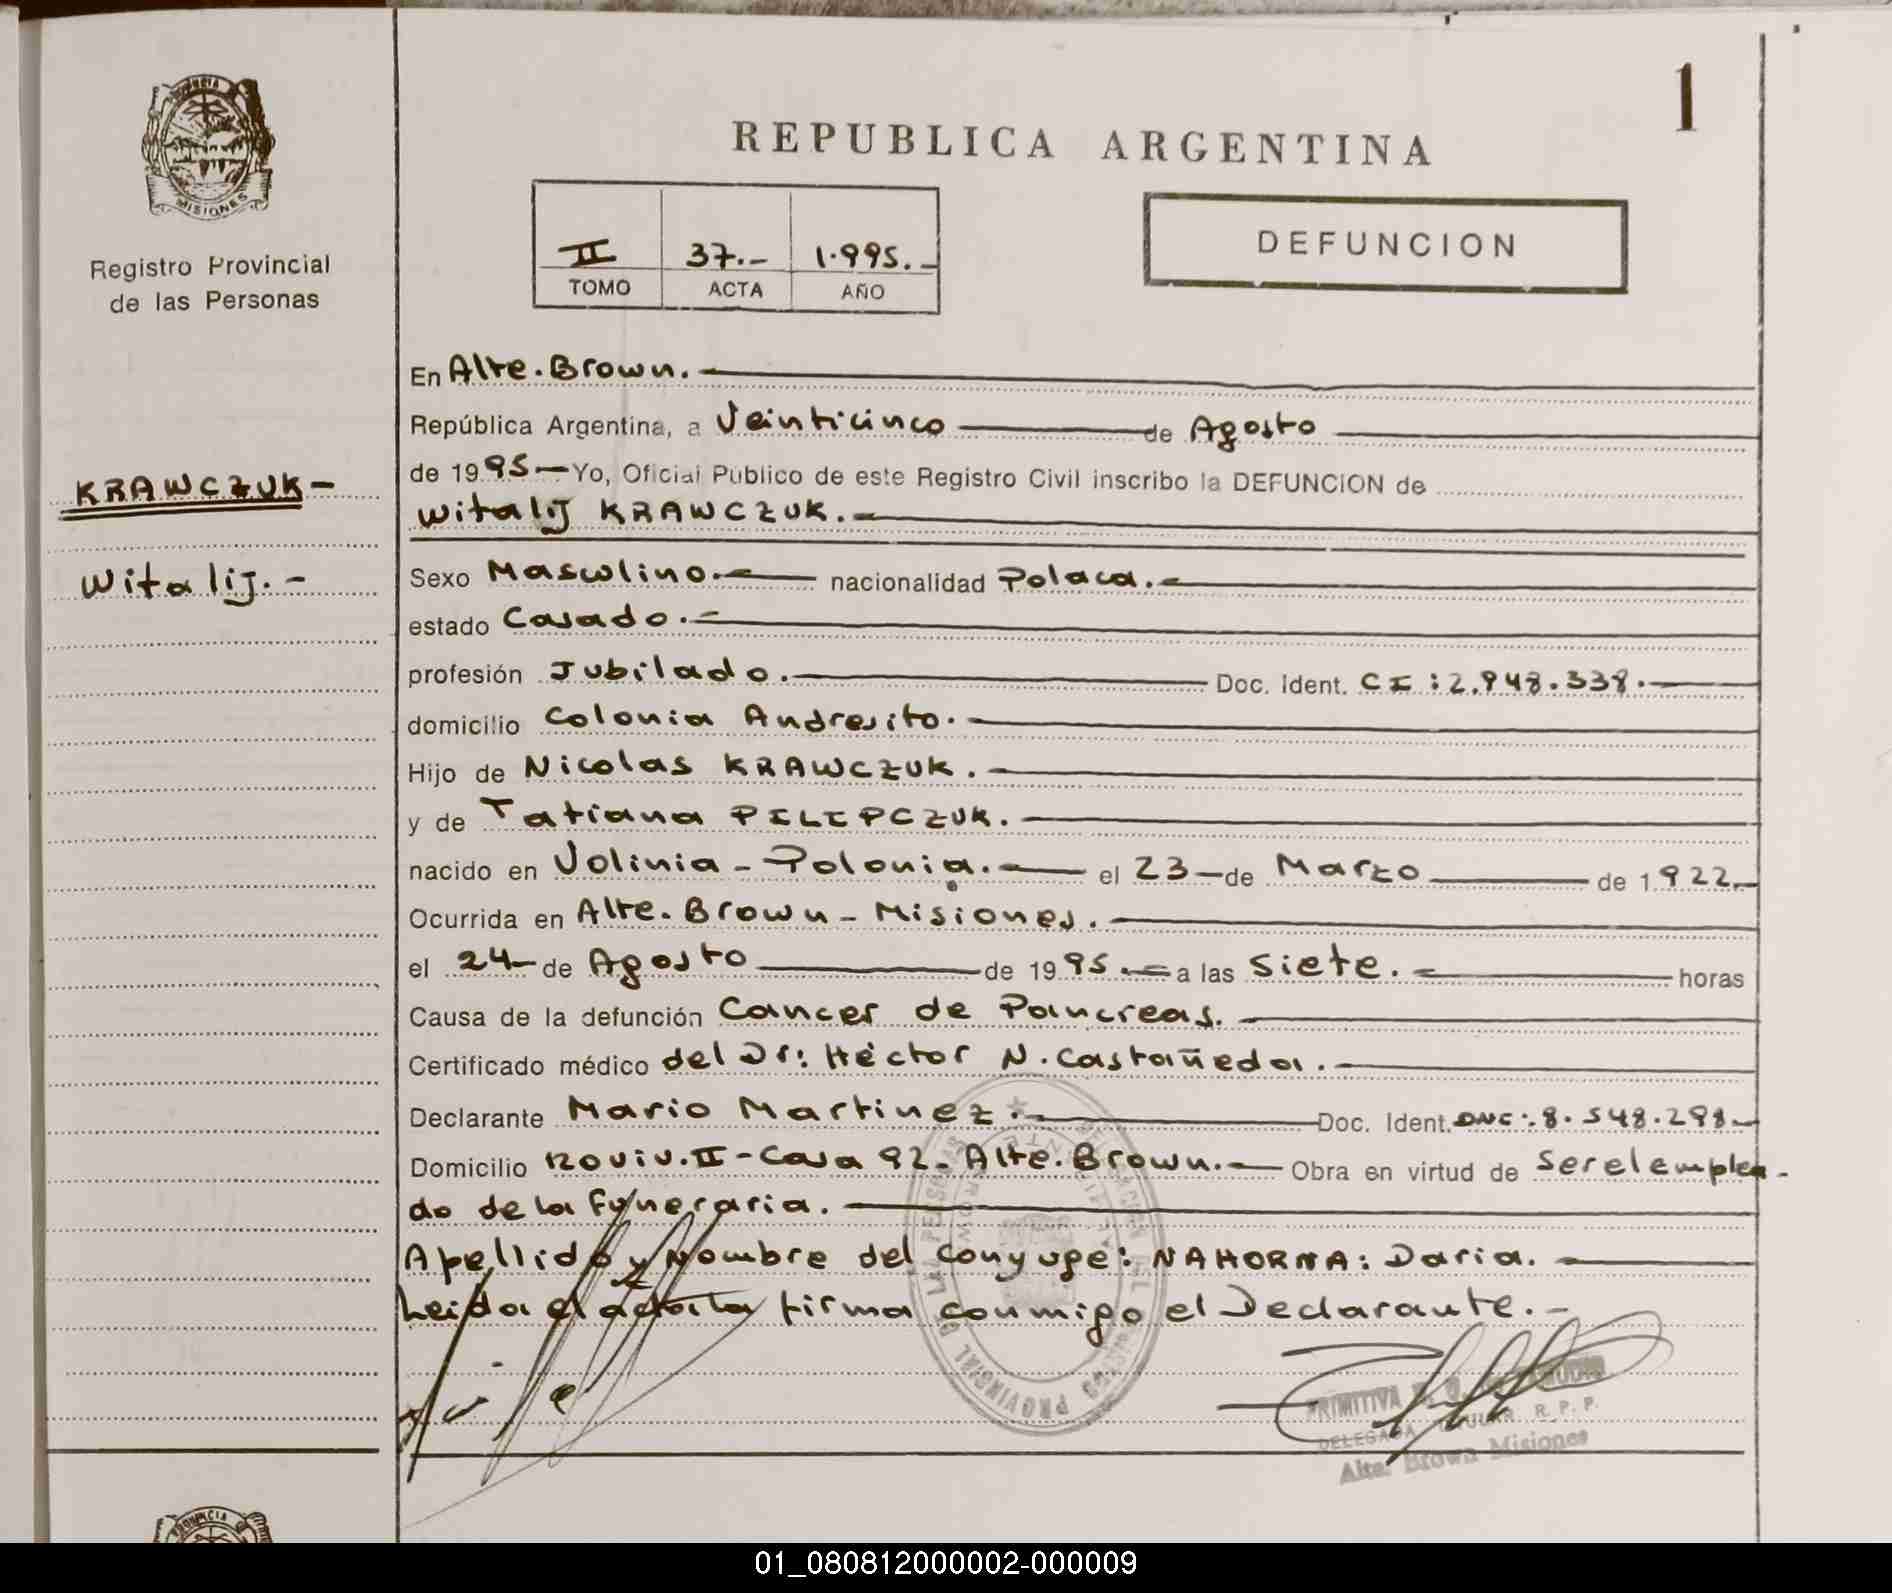 PROVINCIA
MISIONES
Registro Provincial
de las Personas
KRAWCZUK-
Witalij.-
1
REPUBLICA ARGENTINA
II 37.- 1.995.-
TOMO ACTA AÑO
DEFUNCION
En Alte. Brown.
República Argentina, a Veinticinco de Agosto
de 1995 - Yo, Oficial Público de este Registro Civil inscribo la DEFUNCION de
Witalij KRAWCZUK.-
Sexo Masculino.- nacionalidad Polaca.-
estado Casado.-
profesión Jubilado. Doc. Ident. CI: 2.948.338.-
domicilio Colonia Andresito.-
Hijo de Nicolas KRAWCZUK.-
y de Tatiana PILIPCZUK.-
nacido en Volinia - Polonia.- el 23- de Marzo de 1.922.-
Ocurrida en Alte. Brown - Misiones.
el 24- de Agosto de 1995.- a las Siete.- horas
Causa de la defunción Cancer de Pancreas.
Certificado médico del Dr: Héctor N. Castañeda.-
Declarante Mario Martinez.- Doc. Ident. DNI: 8.548.298.-
Domicilio 120 Viv. II - Casa 92- Alte. Brown.- Obra en virtud de Ser el emplea-
do de la Funeraria.
Apellido y Nombre del Conyuge: NAHORNA: Daria.
Leida el acta la firma conmigo el Declarante.-
PRIMITIVA
DELEGADA TITULAR R. P. P.
Alte. Brown Misiones
PROVINCIA
01_080812000002-000009